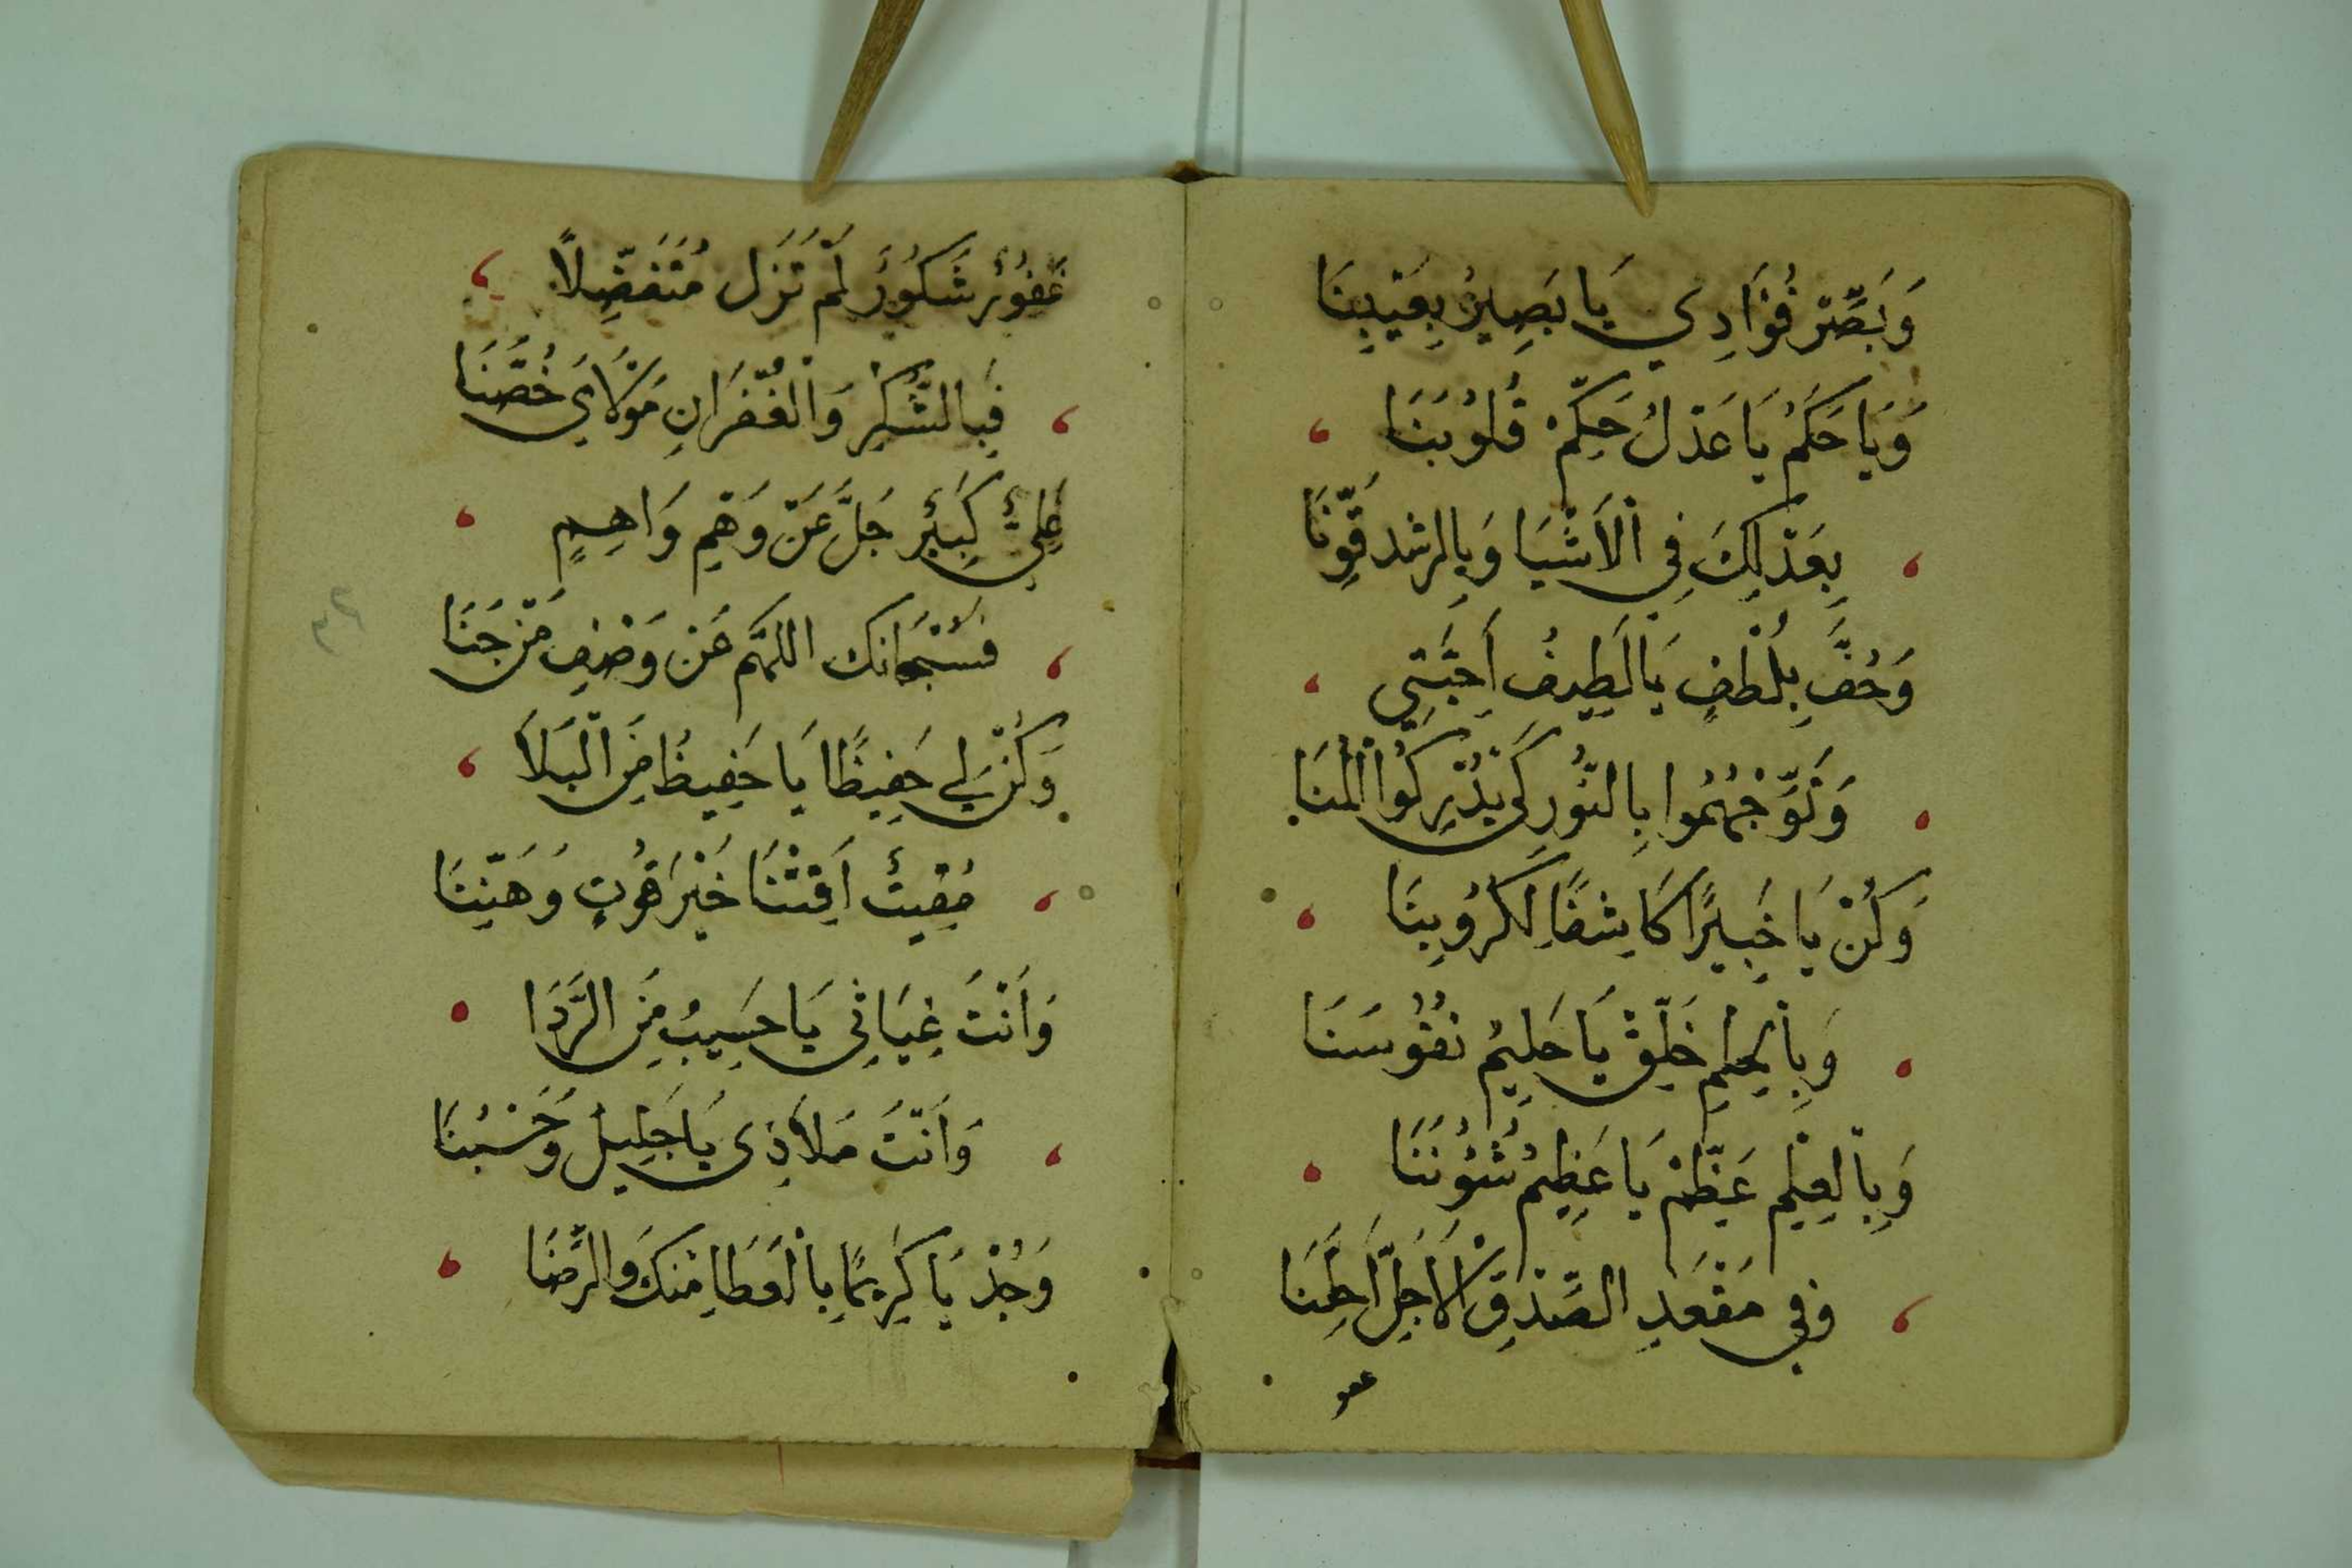 وَبَصِّرْ فُؤَادِي يَا بَصِيرُ بِعَيْبِنَا
وَيَا حَكَمُ يَا عَدْلُ حَكِّمْ قُلُوبَنَا
بِعَدْلِكَ فِي الْأَشْيَا وَبِالرشد قَوِّنَا
وَحُفَّ بِلُطْفٍ يَا لَطِيفُ أَحِبَّتِي
وَتَوِّجْهُمُوا بِالنُّورِ كَيْ يُدْرِكُوا الْمُنَا
وَكُنْ يَا خَبِيرًا كَاشِفًا لِكُرُوبِنَا
وَبِالْحِلْمِ خَلِّقْ يَا حَلِيمُ نُفُوسَنَا
وَبِالْعِلْمِ عَظِّمْ يَا عَظِيمُ شُئُونَنَا
وَفِي مَقْعَدِ الصِّدْقِ الْأَجَلِّ أَحِلَّنَا
غَفُورٌ شَكُورٌ لَمْ تَزَلْ مُتَفَضِّلًا
فَبِالشُّكْرِ وَالْغُفْرَانِ مَوْلَايَ خُصَّنَا
عَلِيٌّ كَبِيرٌ جَلَّ عَنْ وَهْمِ وَاهِمٍ
فَسُبْحَانَكَ اللهم عَنْ وَصْفِ مَنْ جَنَا
وَكُنْ لِي حَفِيظًا يَا حَفِيظُ مِنَ الْبَلَا
مُقِيتُ أَقِتْنَا خَيْرَ قُوتٍ وَهَنِّنَا
وَأَنْتَ غِيَاثِي يَا حَسِيبُ مِنَ الرَّدَا
وَأَنْتَ مَلَاذِي يَا جَلِيلُ وَحَسْبُنَا
وَجُدْ يَا كَرِيمًا بِالْعَطَا مِنْكَ وَالرِّضَا